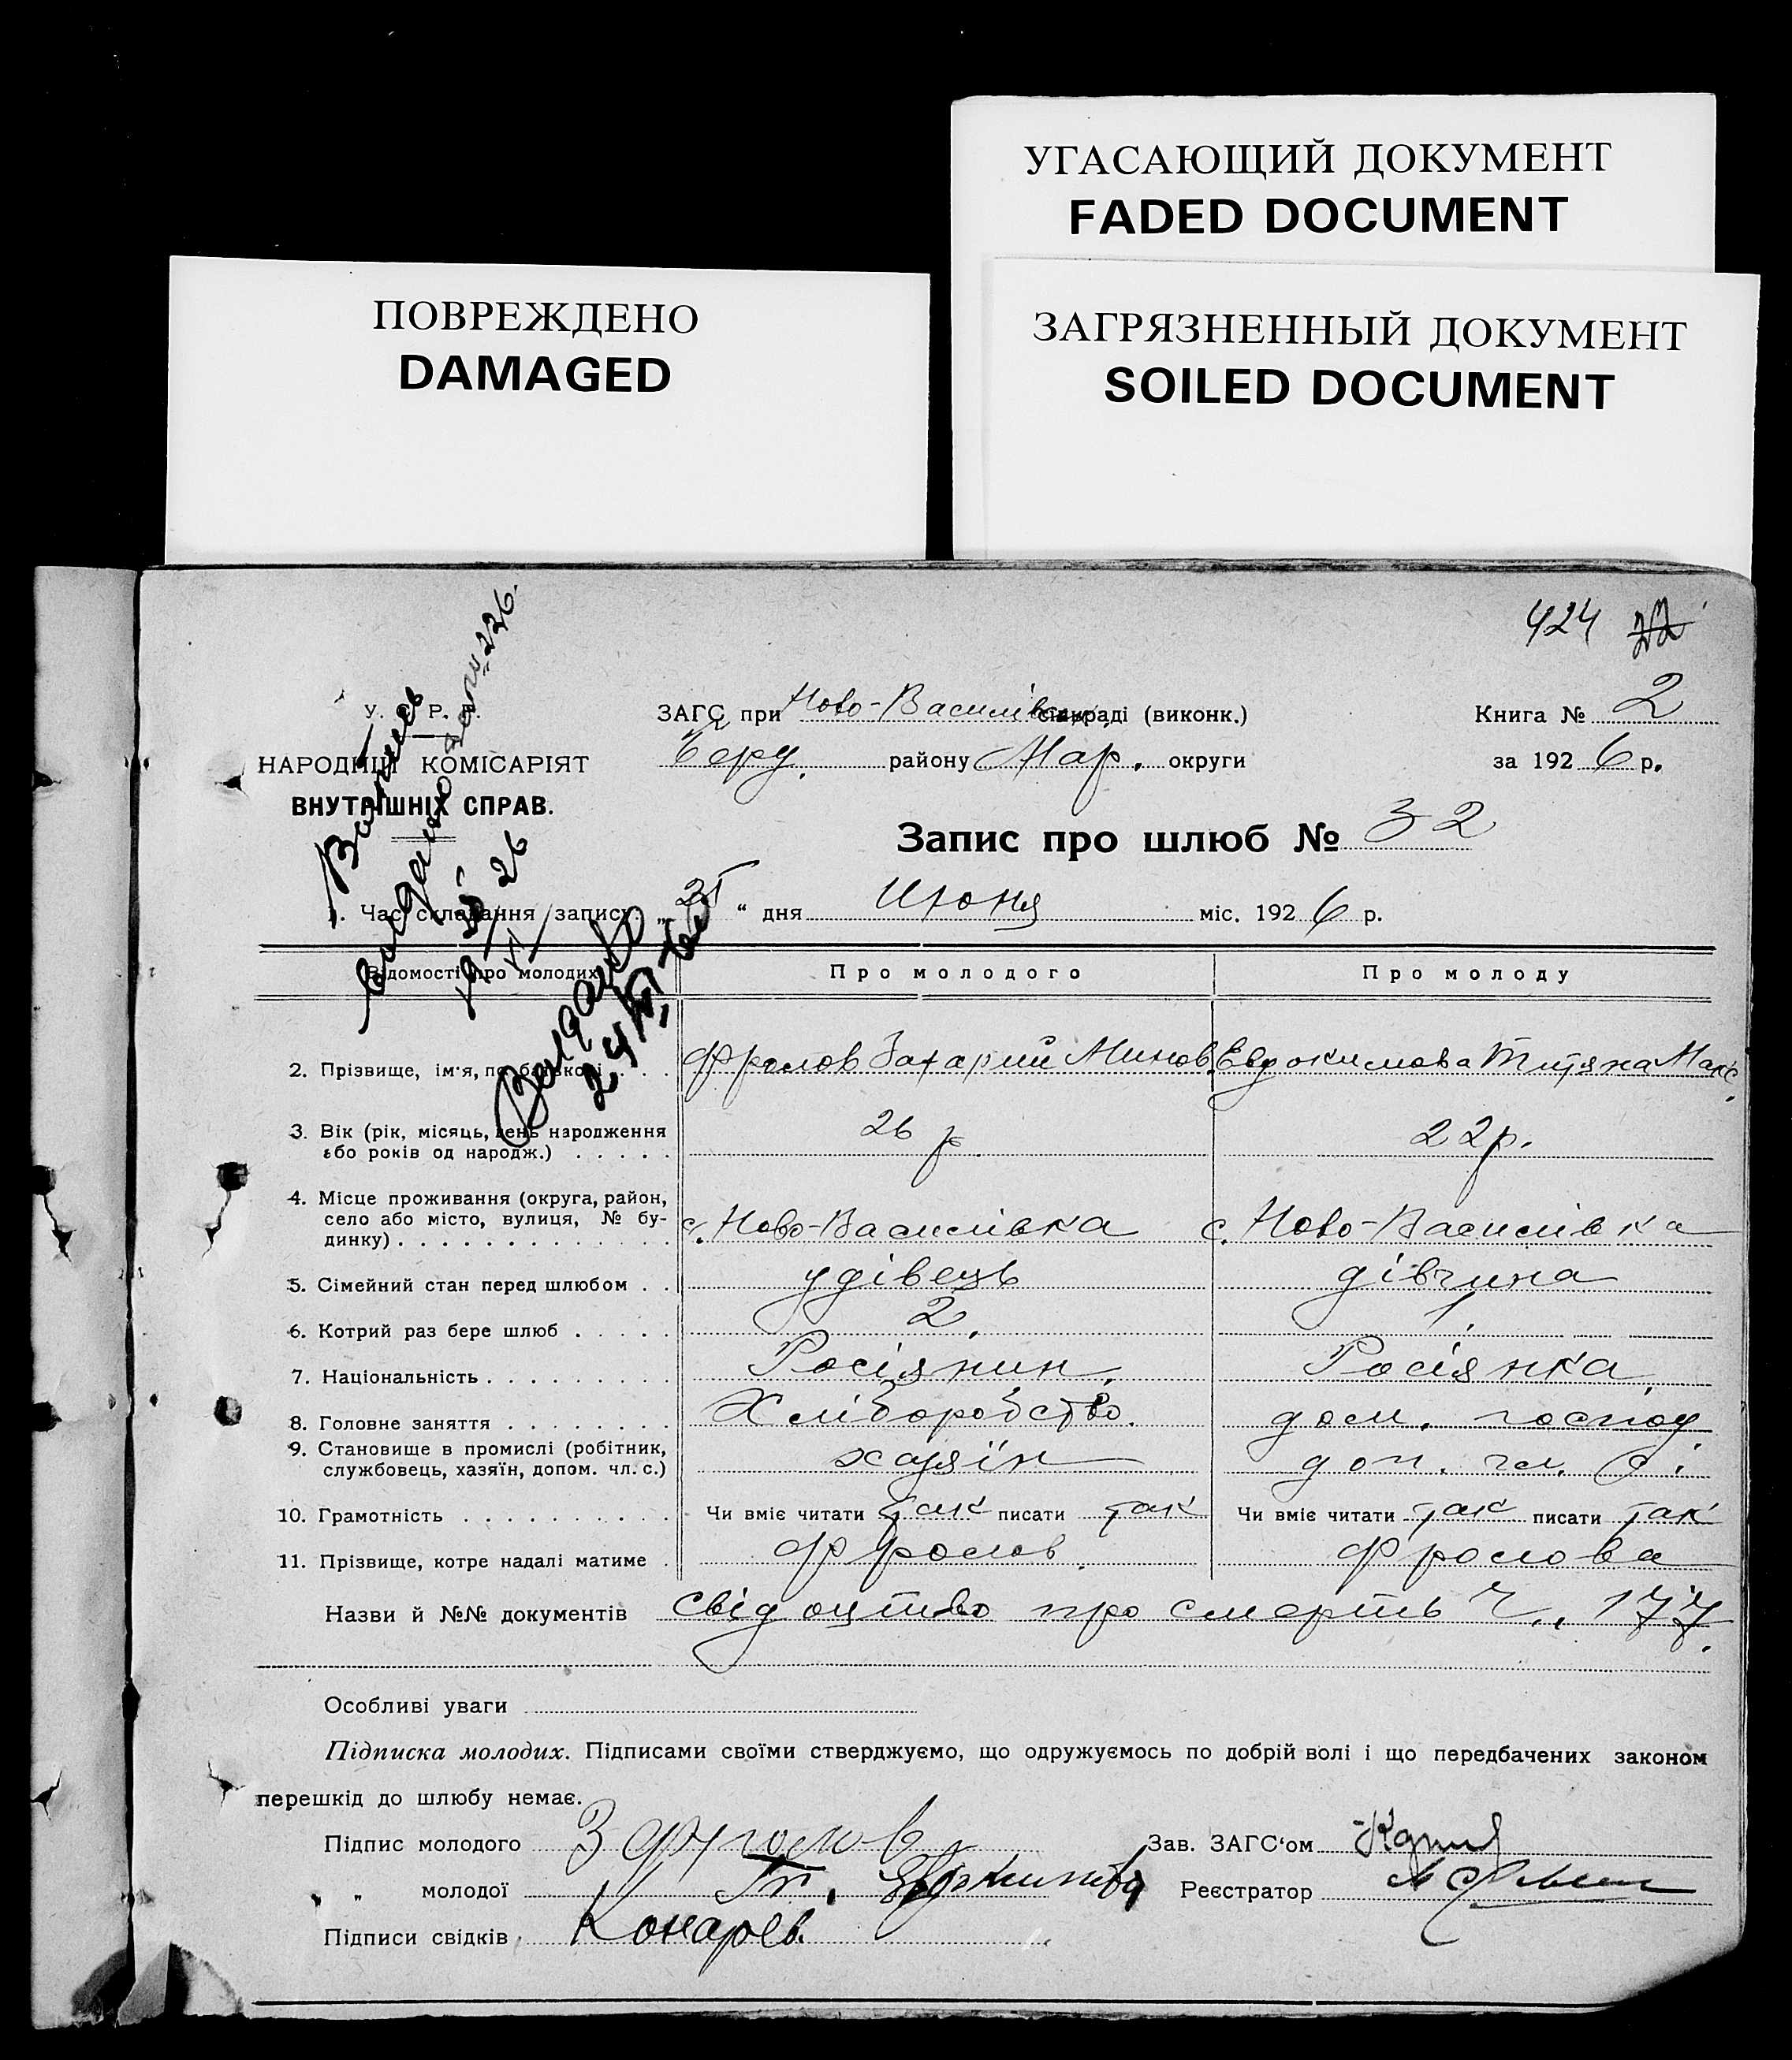 УГАСАЮЩИЙ ДОКУМЕНТ
FADED DOCUMENT
ПОВРЕЖДЕНО
DAMAGED
ЗАГРЯЗНЕННЫЙ ДОКУМЕНТ
SOILED DOCUMENT
424 22
У. С. Р. Р.
НАРОДНІЙ КОМІСАРІЯТ
ВНУТРІШНІХ СПРАВ.
ЗАГС при Ново-Василівск. сільраді (виконк.)
района Мар. округи
Книга № 2
за 1926 р.
Запис про шлюб № 32
1. Час складання запису. „25“ дня Июня міс. 1926 р.
Відомості про молодих
Про молодого
Про молоду
2. Прізвище, ім'я, по батькові . . . .
Фролов Захарий Минов.
Евдокимова Титяна Макс.
3. Вік (рік, місяць, день народження
або років од народж.) . . . . .
26 р
22 р.
4. Місце проживання (округа, район,
село або місто, вулиця, № бу-
динку) . . . . . . . . . . . . .
с. Ново-Василівка
с. Ново-Василівка
5. Сімейний стан перед шлюбом . .
удівець
дівчина
6. Котрий раз бере шлюб . . . . .
2.
1.
7. Національність . . . . . . . . .
Росіянин.
Росіянка.
8. Головне заняття . . . . . . . .
Хліборобство.
дом. господ.
9. Становище в промислі (робітник,
службовець, хазяїн, допом. чл. с.)
хазяїн
доп. чл. с.
10. Грамотність . . . . . . . . . .
Чи вміє читати так писати так
Чи вміє читати так писати так
11. Прізвище, котре надалі матиме .
Фролов.
Фролова
Назви й №№ документів свідоцтво про смерть Ч.. 177.
Особливі уваги
Підписка молодих. Підписами своїми стверджуємо, що одружуємось по добрій волі і що передбачених законом
перешкід до шлюбу немає.
Підпис молодого З Фролов
Зав. ЗАГС'ом
„ „ молодої Тт. Евдокимова
Реєстратор
Підписи свідків Конарев.